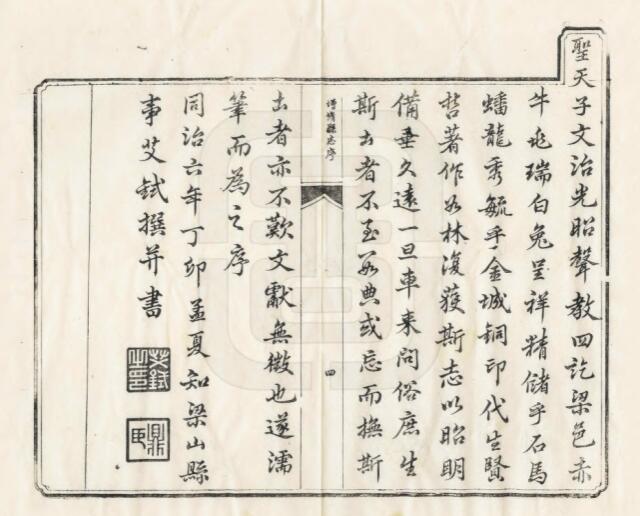 聖天子文治光昭聲教四訖梁邑赤
牛兆瑞白兔呈祥精儲乎石馬
蟠龍秀毓乎金城銅印代生賢
哲著作如林復獲斯志以昭明
備垂久遠一旦車來問俗庶生
斯土者不至數典或忘而撫斯
增修縣志序
四
土者亦不歎文獻無徵也遂濡
筆而為之序
同治六年丁卯孟夏知梁山縣
事艾鉽撰并書
艾鉽之印
鼎臣